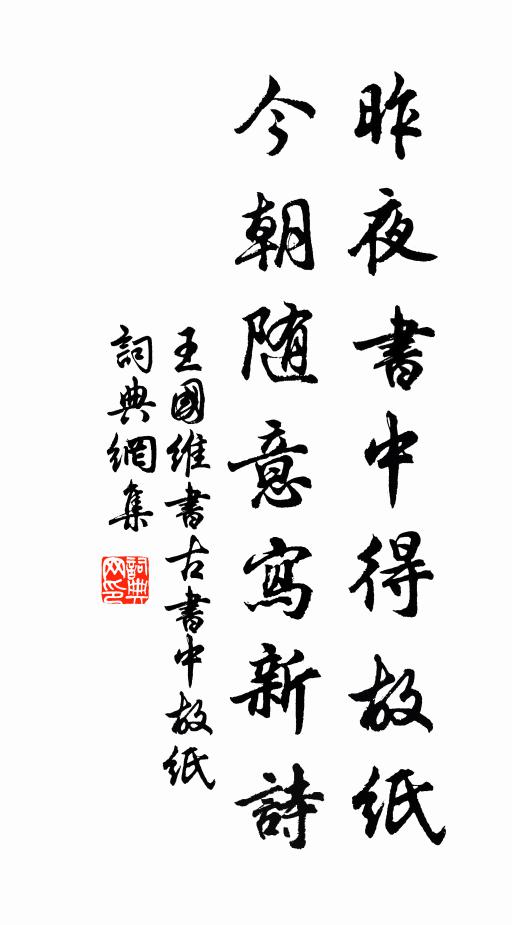 昨夜書中得故紙
今朝随意寫新詩
王國維書古書中故紙
詞典網集
詞典网印